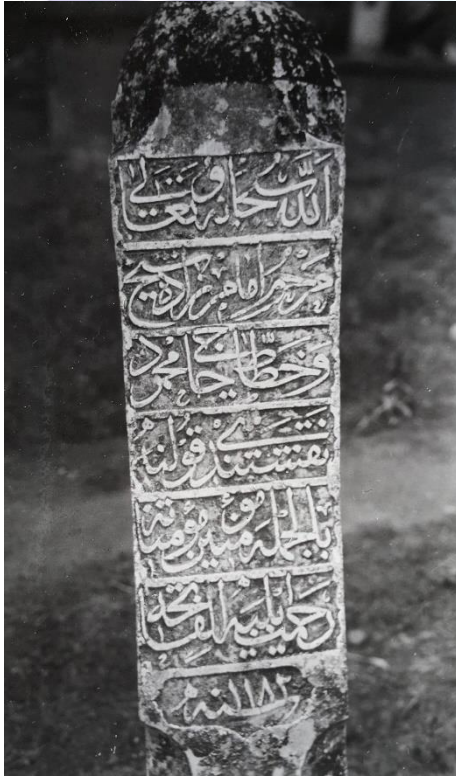 الله سبحانه وتعالى
مرحوم امام زاده شيخ
وخطاط حاجى محمد
نقشبندى قولنه
بالجمله مؤمنين ومؤمنه
رحمت ايليه الفاتحه
سنه ١١٨٢